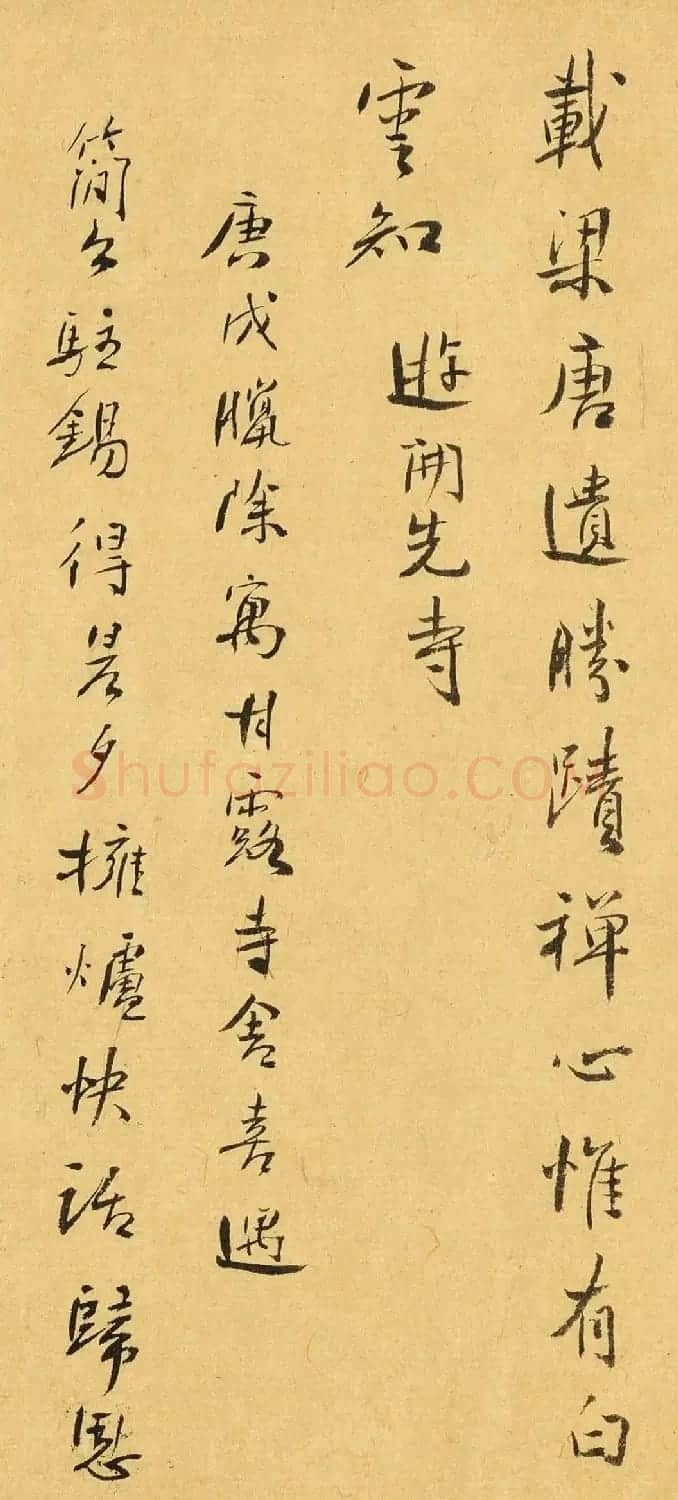 載梁唐遺勝蹟禅心惟有白
雲知 遊開先寺
庚戌臘除寓甘露寺舍喜遇
簡公駐錫得晨夕擁爐快話歸
Shufaziliao.COM